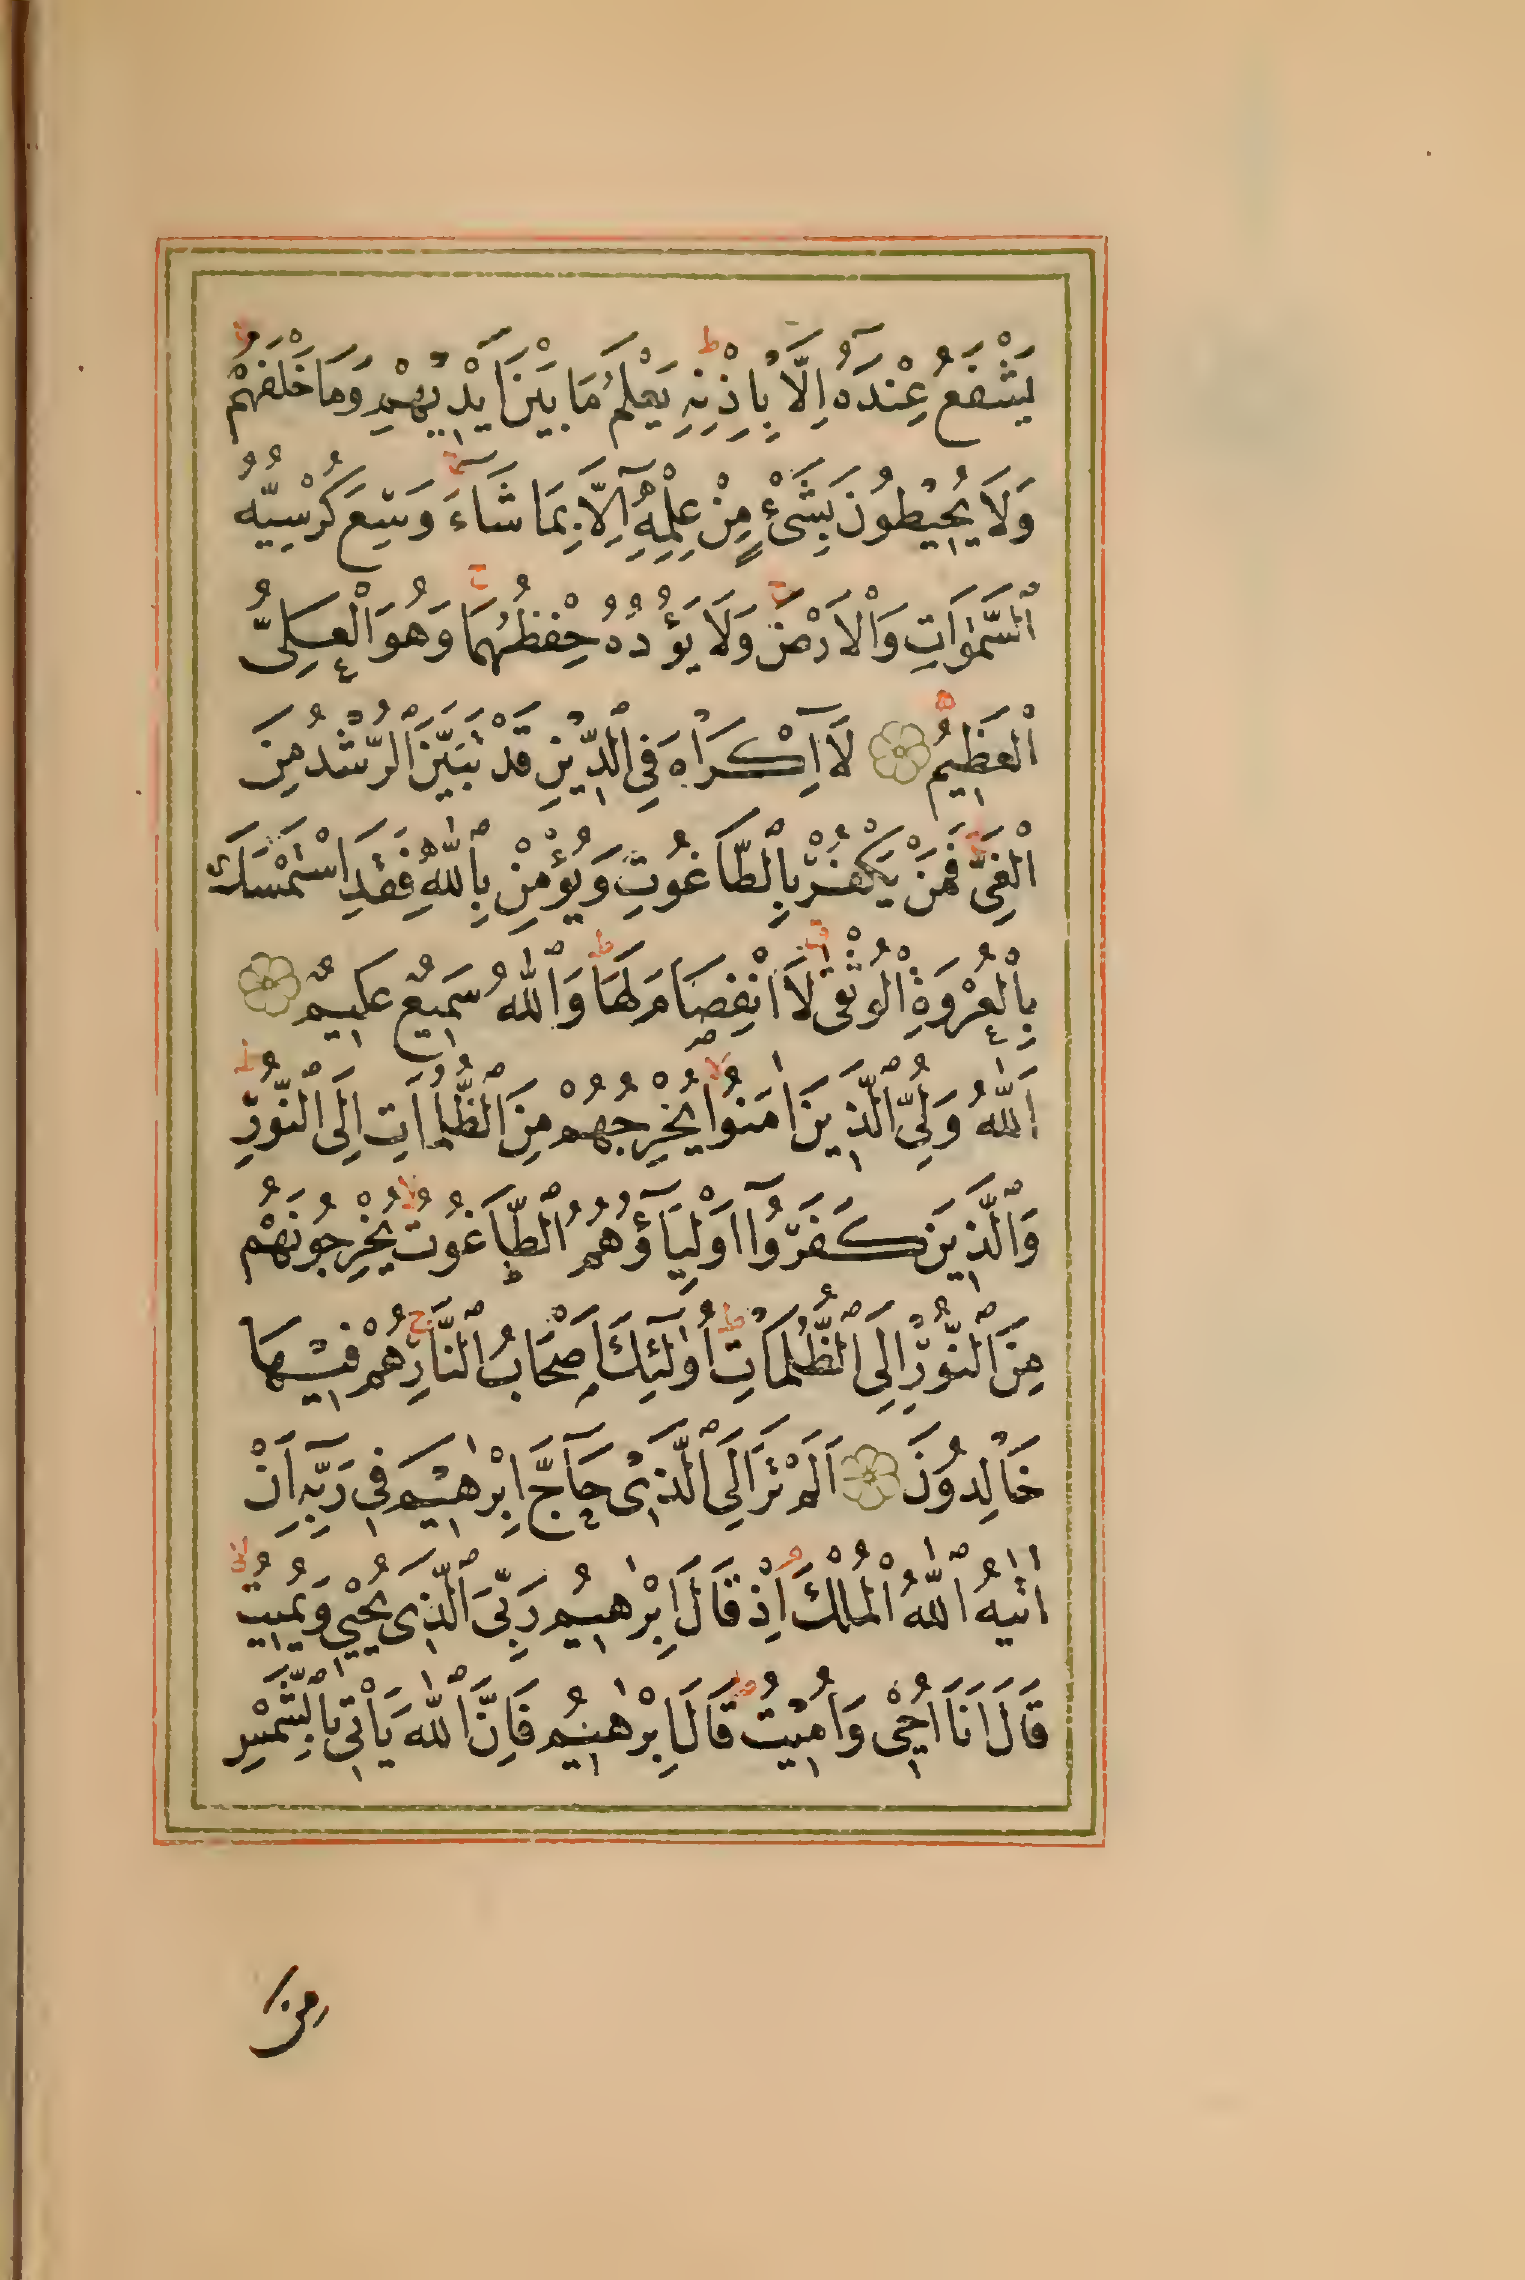 يَشْفَعُ عِنْدَهُٓ اِلَّا بِاِذْنِهِ ط يَعْلَمُ مَا بَيْنَ اَيْدِيْهِمْ وَمَا خَلْفَهُمْ
وَلَا يُحِيْطُوْنَ بِشَىْءٍ مِنْ عِلْمِهِٓ اِلَّا بِمَا شَاءَ وَسِعَ كُرْسِيُّهُ
السَّمٰوَاتِ وَالْاَرْضَ وَلَا يَؤُدُهُ حِفْظُهُمَا وَهُوَ الْعَلِىُّ
الْعَظِيْمُ لَا اِكْرَاهَ فِى الدِّيْنِ قَدْ تَبَيَّنَ الرُّشْدُ مِنَ
الْغَىِّ فَمَنْ يَكْفُرْ بِالطَّاغُوتِ وَيُؤْمِنْ بِاللّٰهِ فَقَدِ اسْتَمْسَكَ
بِالْعُرْوَةِ الْوُثْقٰى ق لَا انْفِصَامَ لَهَا ط وَاللّٰهُ سَمِيْعٌ عَلِيْمٌ
اَللّٰهُ وَلِىُّ الَّذِيْنَ اٰمَنُوْا لا يُخْرِجُهُمْ مِنَ الظُّلُمَاتِ اِلَى النُّوْرِ ط
وَالَّذِيْنَ كَفَرُوْٓا اَوْلِيَٓاؤُهُمُ الطَّاغُوتُ لا يُخْرِجُونَهُمْ
مِنَ النُّوْرِ اِلَى الظُّلُمَاتِ ط اُولٰٓئِكَ اَصْحَابُ النَّارِ ج هُمْ فِيْهَا
خَالِدُونَ اَلَمْ تَرَ اِلَى الَّذِىْ حَٓاجَّ اِبْرٰهِيْمَ فِى رَبِّهِٓ اَنْ
اٰتٰيهُ اللّٰهُ الْمُلْكَ م اِذْ قَالَ اِبْرٰهِيْمُ رَبِّىَ الَّذِى يُحْيِى وَيُمِيْتُ لا
قَالَ اَنَا اُحْيِى وَاُمِيْتُ ط قَالَ اِبْرٰهِيْمُ فَاِنَّ اللّٰهَ يَاْتِى بِالشَّمْسِ
مِنَ